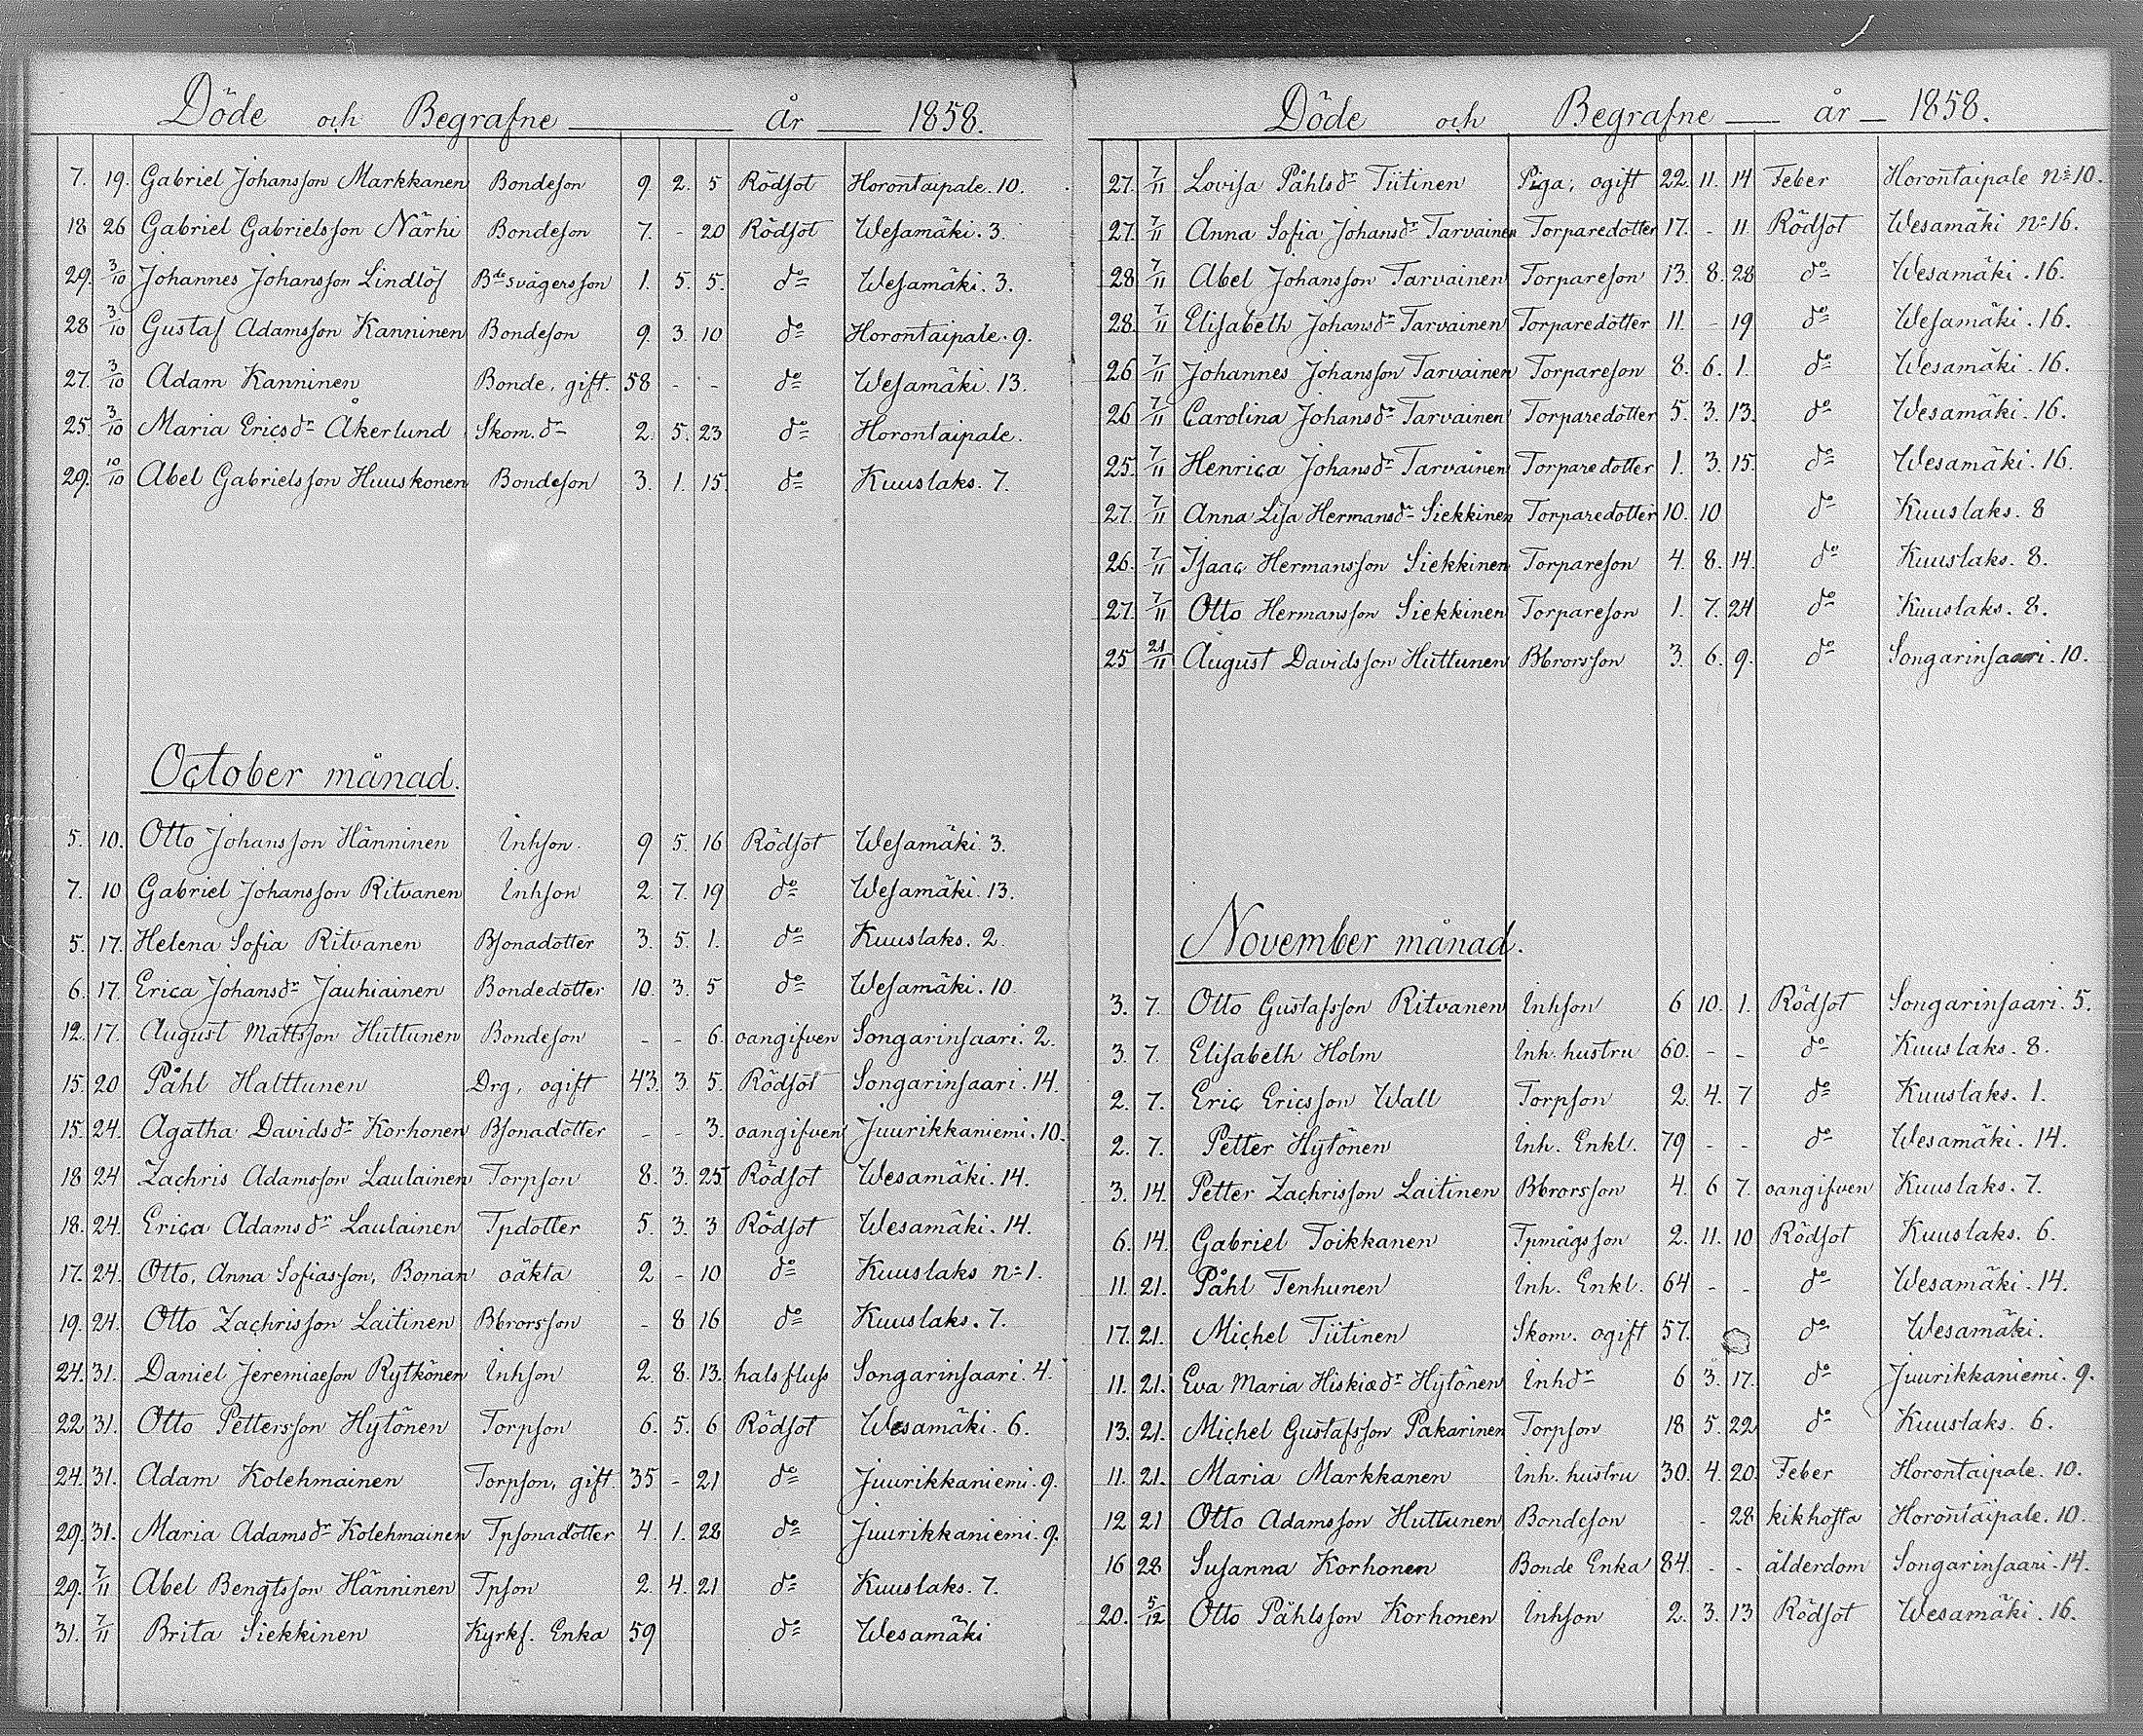 Döde och Begrafne år 1858.
7. 19. Gabriel Johansson Markkanen Bondeson 9. 2. 5 Rödsot Horontaipale. 10.
18 26 Gabriel Gabrielsson Närhi Bondeson 7. - 20 Rödsot Wesamäki. 3.
29. 3/10 Johannes Johansson Lindlöf Bde svägersson 1. 5. 5. do Wesamäki. 3.
28 3/10 Gustaf Adamsson Kanninen Bondeson 9. 3. 10 do Horontaipale. 9.
27. 3/10 Adam Kanninen Bonde, gift. 58 - - do Wesamäki. 13.
25. 3/10 Maria Ericsdr Åkerlund Skom. dr 2. 5. 23 do Horontaipale.
29. 10/10 Abel Gabrielsson Huuskonen Bondeson 3. 1. 15. do Kuuslaks. 7.
October månad.
5. 10. Otto Johansson Hänninen Inhson. 9 5. 16 Rödsot Wesamäki. 3.
7. 10 Gabriel Johansson Ritvanen Inhson 2. 7. 19 do Wesamäki. 13.
5. 17. Helena Sofia Ritvanen Bsonadotter 3. 5. 1. do Kuuslaks. 2.
6. 17. Erica Johansdr Jauhiainen Bondedotter 10. 3. 5 do Wesamäki. 10.
12. 17. August Mattsson Huttunen Bondeson - - 6. oangifven Songarinsaari. 2.
15. 20 Påhl Halttunen Drg, ogift 43. 3. 5. Rödsot Songarinsaari. 14.
15. 24. Agatha Davidsdr Korhonen Bsonadotter - - 3. oangifven Juurikkaniemi. 10.
18 24 Zachris Adamsson Laulainen Torpson 8. 3. 25 Rödsot Wesamäki. 14.
18. 24. Erica Adamsdr Laulainen Tpdotter 5. 3. 3 Rödsot Wesamäki. 14.
17. 24. Otto, Anna Sofiasson, Boman oäkta 2 - 10 do Kuuslaks No 1.
19. 24. Otto Zachrisson Laitinen Bbrorsson - 8 16 do Kuuslaks. 7.
24. 31. Daniel Jeremiaeson Rytkönen Inhson 2. 8. 13. halsfluss Songarinsaari. 4.
22 31. Otto Pettersson Hytönen Torpson 6. 5. 6 Rödsot Wesamäki. 6.
24. 31. Adam Kolehmainen Torpson, gift. 35 - 21 do Juurikkaniemi. 9.
29. 31. Maria Adamsdr Kolehmainen Tpsonadotter 4. 1. 28 do Juurikkaniemi. 9.
29. 7/11 Abel Bengtsson Hänninen Tpson 2. 4. 21 do Kuuslaks. 7.
31. 7/11 Brita Siekkinen Kyrkf. Enka 59 do Wesamäki
Döde och Begrafne år 1858.
27. 7/11 Lovisa Påhlsdr Tiitinen Piga, ogift 22. 11. 14 Feber Horontaipale No 10.
27. 7/11 Anna Sofia Johansdr Tarvainen Torparedotter 17. - 11 Rödsot Wesamäki No 16.
28 7/11 Abel Johansson Tarvainen Torpareson 13. 8. 28 do Wesamäki. 16.
28. 7/11 Elisabeth Johansdr Tarvainen Torparedotter 11. - 19 do Wesamäki. 16.
26 7/11 Johannes Johansson Tarvainen Torpareson 8. 6. 1. do Wesamäki. 16.
26 7/11 Carolina Johansdr Tarvainen Torparedotter 5. 3. 13. do Wesamäki. 16.
25. 7/11 Henrica Johansdr Tarvainen Torparedotter 1. 3. 15. do Wesamäki. 16.
27. 7/11 Anna Lisa Hermansdr Siekkinen Torparedotter 10. 10 do Kuuslaks. 8
26. 7/11 Isaac Hermansson Siekkinen Torpareson 4. 8. 14. do Kuuslaks. 8.
27. 7/11 Otto Hermansson Siekkinen Torpareson 1. 7. 24 do Kuuslaks. 8.
25 21/11 August Davidsson Huttunen Bbrorsson 3. 6. 9. do Songarinsaari. 10.
November månad.
3. 7. Otto Gustafsson Ritvanen Inhson 6 10. 1. Rödsot Songarinsaari. 5.
3. 7. Elisabeth Holm Inh. hustru 60. - - do Kuuslaks. 8.
2. 7. Eric Ericsson Wall Torpson 2. 4. 7 do Kuuslaks. 1.
2. 7. Petter Hytönen Inh. Enkl. 79 - - do Wesamäki. 14.
3. 14. Petter Zachrisson Laitinen Bbrorsson 4. 6 7. oangifven Kuuslaks. 7.
6. 14. Gabriel Toikkanen Tpmågsson 2. 11. 10 Rödsot Kuuslaks. 6.
11. 21. Påhl Tenhunen Inh. Enkl. 64 - - do Wesamäki. 14.
17. 21. Michel Tiitinen Skom. ogift 57. do Wesamäki.
11. 21. Eva Maria Hiskiædr Hytönen Inhdr 6 3. 17. do Juurikkaniemi. 9.
13. 21. Michel Gustafsson Pakarinen Torpson 18 5. 22 do Kuuslaks. 6.
11. 21. Maria Markkanen Inh. hustru 30. 4. 20. Feber Horontaipale. 10.
12 21 Otto Adamsson Huttunen Bondeson - 28 kikhosta Horontaipale. 10.
16 28 Susanna Korhonen Bonde Enka 84. - - ålderdom Songarinsaari. 14.
20. 5/12 Otto Påhlsson Korhonen Inhson 2. 3. 13 Rödsot Wesamäki. 16.